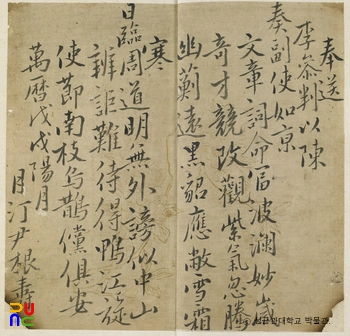 奉送
李參判以陳
奏副使如京
文章詞命富波瀾妙歲
奇才競改觀紫氣忽騰
幽薊遠黑貂應敝雪霜
寒
日臨周道明無外謗似中山
辨詎難待得鴨江旋
使節南枝烏鵲儻俱安
萬曆戊戌陽月
月汀尹根壽
성균관대학교 박물관